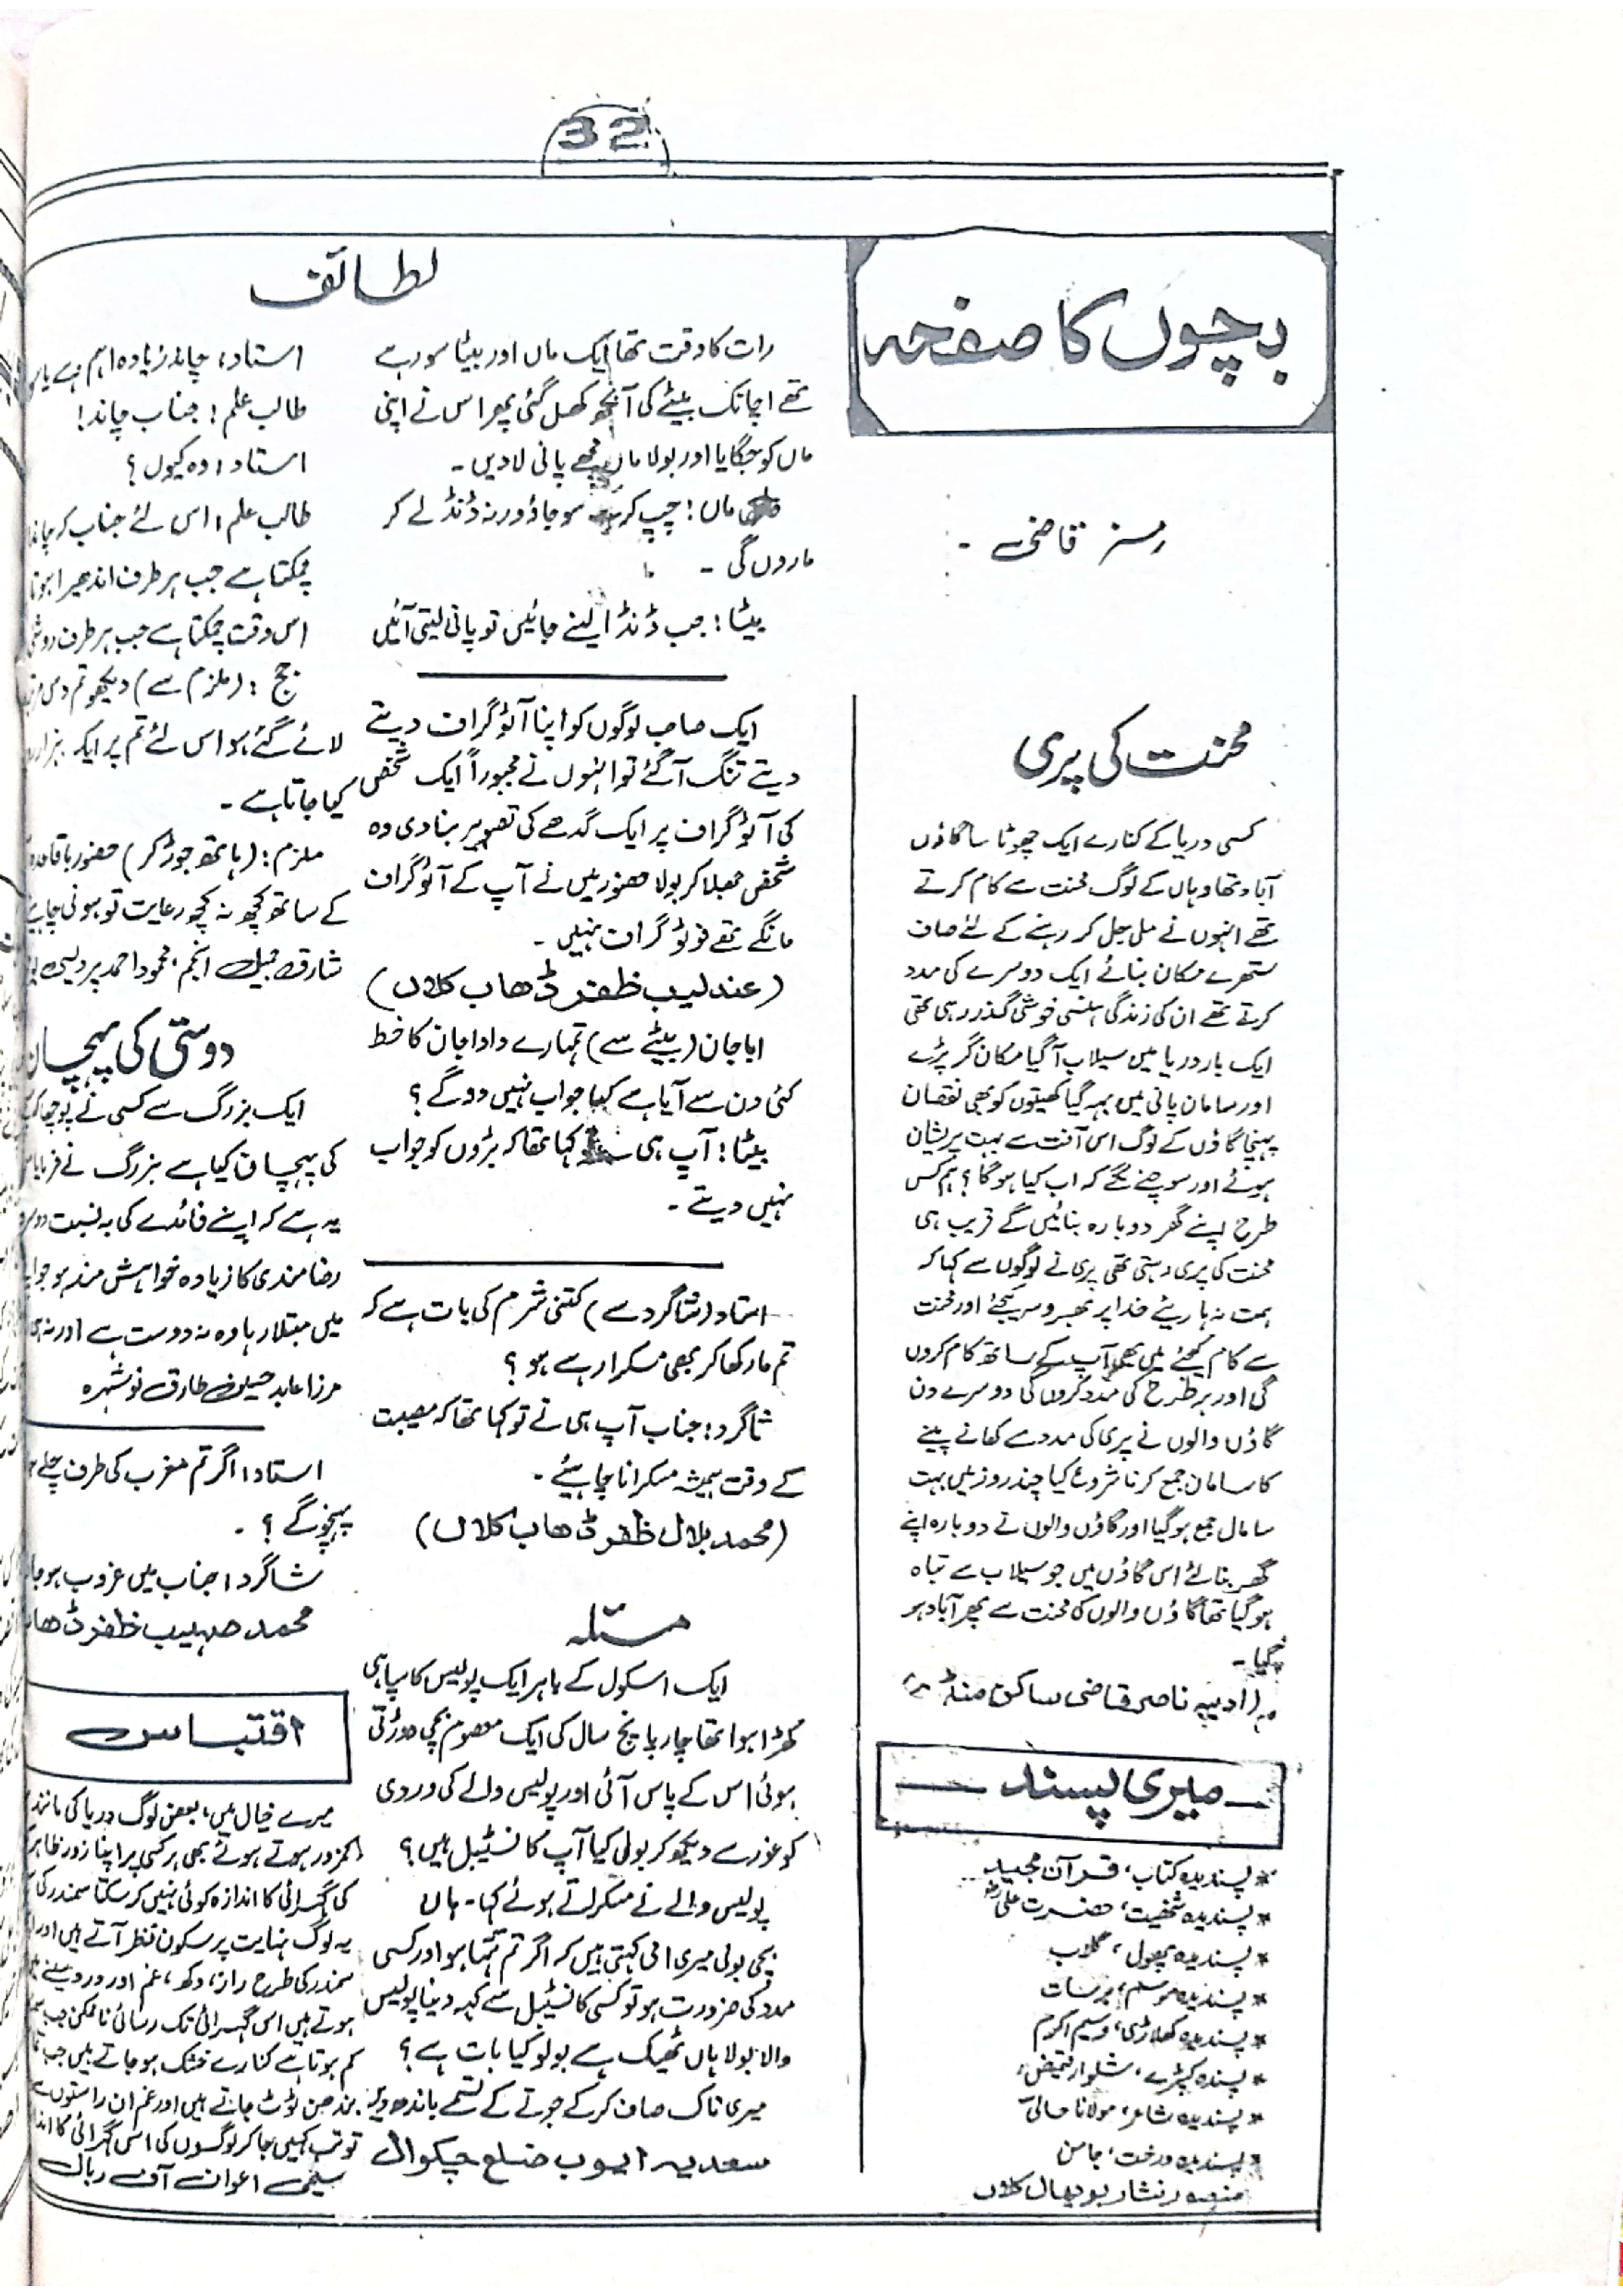 32
بچوں کا صفحہ
مسز قاضی ۔
محنت کی پری
کسی دریا کے کنارے ایک چھوٹا سا گاؤں
آباد تھا وہاں کے لوگ محنت سے کام کرتے
تھے انہوں نے مل جل کر رہنے کے لئے صاف
ستھرے مکان بنائے ایک دوسرے کی مدد
کرتے تھے ان کی زندگی ہنسی خوشی گذر رہی تھی
ایک بار دریا میں سیلاب آ گیا مکان گر پڑے
اور سامان پانی میں بہہ گیا کھیتوں کو بھی نقصان
پہنچا گاؤں کے لوگ اس آفت سے بہت پریشان
ہوئے اور سوچنے لگے کہ اب کیا ہو گا؟ ہم کس
طرح اپنے گھر دوبارہ بنائیں گے قریب ہی
محنت کی پری رہتی تھی پری نے لوگوں سے کہا کہ
ہمت نہ ہاریئے خدا پر بھروسہ کیجئے اور محنت
سے کام کیجئے میں بھی آپ کے ساتھ کام کروں
گی اور ہر طرح کی مدد کروں گی دوسرے دن
گاؤں والوں نے پری کی مدد سے کھانے پینے
کا سامان جمع کرنا شروع کیا چند روز میں بہت
سا مال جمع ہو گیا اور گاؤں والوں نے دوبارہ اپنے
گھر بنا لئے اس گاؤں میں جو سیلاب سے تباہ
ہو گیا تھا گاؤں والوں کی محنت سے پھر آباد ہو
گیا ۔
(ادیبہ ناصر قاضی ساکن منڈے)
میری پسند
* پسندیدہ کتاب، قرآن مجید
* پسندیدہ شخصیت، حضرت علیؓ
* پسندیدہ پھول، گلاب
* پسندیدہ موسم، برسات
* پسندیدہ کھلاڑی، وسیم اکرم
* پسندہ کپڑے، شلوار قمیض
* پسندیدہ شاعر، مولانا حالیؔ
* پسندیدہ درخت، جامن
منصور نثار بوچھال کلاں
لطائف
رات کا وقت تھا ایک ماں اور بیٹا سو رہے
تھے اچانک بیٹے کی آنکھ کھل گئی پھر اس نے اپنی
ماں کو جگایا اور بولا ماں مجھے پانی لا دیں ۔
ماں! چپ کر کے سو جاؤ ورنہ ڈنڈا لے کر
ماروں گی ۔
بیٹا! جب ڈنڈا لینے جائیں تو پانی لیتی آئیں
ایک صاحب لوگوں کو اپنا آٹو گراف دیتے
دیتے تنگ آ گئے تو انہوں نے مجبوراً ایک شخص
کی آٹو گراف پر ایک گدھے کی تصویر بنا دی وہ
شخص جھلا کر بولا حضور میں نے آپ کے آٹو گراف
مانگے تھے فوٹو گراف نہیں ۔
(عندلیب ظفر ڈھاب کلاں)
ابا جان (بیٹے سے) تمہارے دادا جان کا خط
کئی دن سے آیا ہے کیا جواب نہیں دو گے؟
بیٹا! آپ ہی نے کہا تھا کہ بڑوں کو جواب
نہیں دیتے ۔
استاد (شاگرد سے) کتنی شرم کی بات ہے کہ
تم مار کھا کر بھی مسکرا رہے ہو؟
شاگرد: جناب آپ ہی نے تو کہا تھا کہ مصیبت
کے وقت ہمیشہ مسکرانا چاہیئے ۔
(محمد بلال ظفر ڈھاب کلاں)
مسئلہ
ایک اسکول کے باہر ایک پولیس کا سپاہی
کھڑا ہوا تھا چار پانچ سال کی ایک معصوم بچی دوڑتی
ہوئی اس کے پاس آئی اور پولیس والے کی وردی
کو غور سے دیکھ کر بولی کیا آپ کانسٹیبل ہیں؟
پولیس والے نے مسکراتے ہوئے کہا۔ ہاں
بچی بولی میری امی کہتی ہیں کہ اگر تم تنہا ہو اور کسی
مدد کی ضرورت ہو تو کسی کانسٹیبل سے کہہ دینا پولیس
والا بولا ہاں ٹھیک ہے بولو کیا بات ہے؟
میری ناک صاف کر کے جوتے کے تسمے باندھ دیں
سعدیہ ایوب ضلع چکوال
استاد: چاند زیادہ اہم ہے یا
طالب علم! جناب چاند!
استاد: وہ کیوں؟
طالب علم: اس لئے جناب کہ چاند
چمکتا ہے جب ہر طرف اندھیرا ہوتا
اس وقت چمکتا ہے جب ہر طرف روشنی
جج: (ملزم سے) دیکھو تم دس مرتبہ
لائے گئے ہو اس لئے تم پر ایک ہزار
کیا جاتا ہے ۔
ملزم: (ہاتھ جوڑ کر) حضور باقاعدہ
کے ساتھ کچھ نہ کچھ رعایت تو ہونی چاہیے
شارق جمیل انجم، محمود احمد پردیسی
دوستی کی پہچان
ایک بزرگ سے کسی نے پوچھا کہ
کی پہچان کیا ہے بزرگ نے فرمایا
یہ ہے کہ اپنے فائدے کی بہ نسبت دوسرے
رضا مندی کا زیادہ خواہش مند ہو جو
میں مبتلا رہا وہ نہ دوست ہے اور نہ ہی
مرزا عابد حسین طارق نوشہرہ
استاد: اگر تم مغرب کی طرف چلے
پہنچو گے؟ ۔
شاگرد: جناب میں غروب ہو جا
محمد صہیب ظفر ڈھاب
اقتباس
میرے خیال میں، بعض لوگ دریا کی مانند
کمزور ہوتے ہوئے بھی ہر کسی پر اپنا زور ظاہر
کی گہرائی کا اندازہ کوئی نہیں کر سکتا سمندر کی
یہ لوگ نہایت پر سکون نظر آتے ہیں اور
سمندر کی طرح راز، دکھ، غم اور درد سینے میں
ہوتے ہیں اس گہرائی تک رسائی ناممکن جب
کم ہوتا ہے کنارے خشک ہو جاتے ہیں جب
بندھن ٹوٹ جاتے ہیں اور غم ان راستوں سے
تو تب کہیں جا کر لوگوں کی اس گہرائی کا
سلیمی اعوان آف ربال